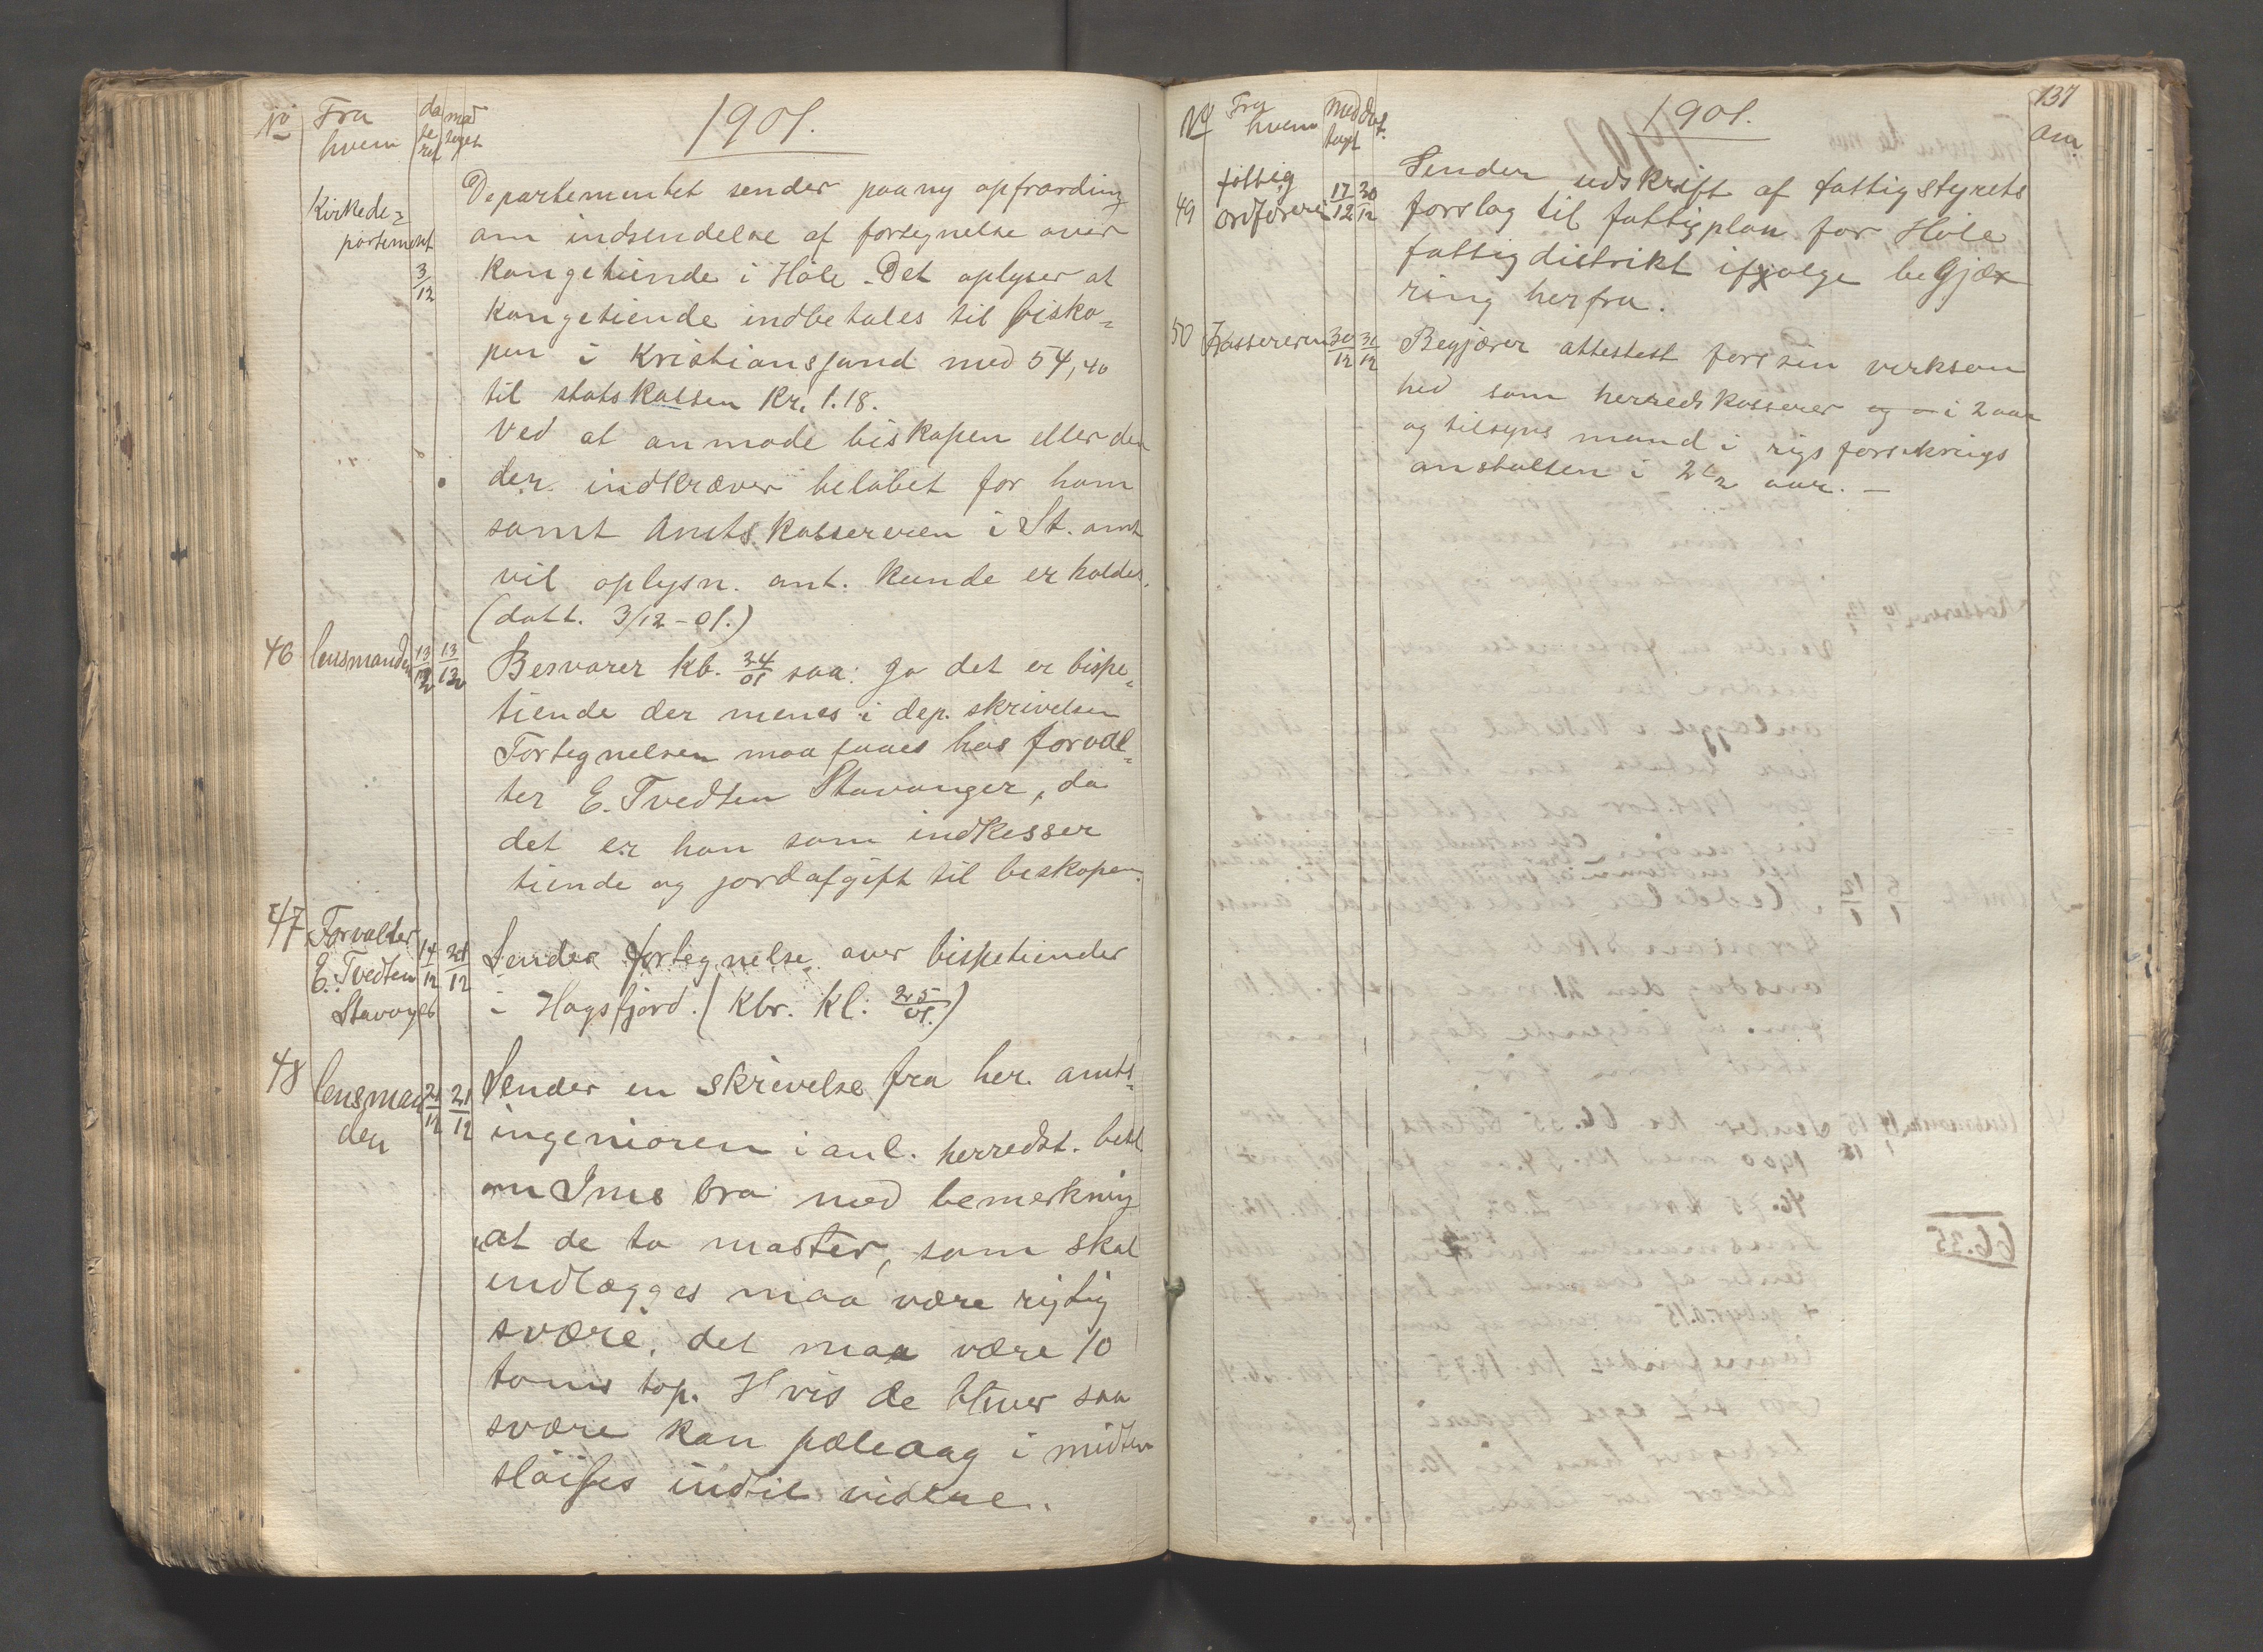 No Fra hvem da te ret mod taget
1901.
Kirkede=
partement
3/12
Departementet sender paany opfording
om indsendelse af fortegnelse over
kongetiende i Høle. Det oplyser at
kongetiende indbetales til bisko=
pen i Kristianssand med 54,40
til statskassen Kr. 1.18.
Ved at anmode biskopen eller den
der indkræver beløbet for ham
samt Amtskassereren i St. amt
vil oplysn. ant. kunde erholdes.
(datt. 3/12-01.)
46 lensmanden 13/12 13/12
Besvarer kb. 24/01 saa: Ja det er bispe=
tiende der menes i dep. skrivelsen
Fortegnelsen maa faaes hos forval=
ter E. Tvedten Stavanger, da
det er han som indkesser
tiende og jordafgift til biskopen.
47 Forvalter
E. Tvedten
Stavanger
14/12 21/12
Sender fortegnelse over bispetiender
i Høgsfjord. (Kbr. kl: 25/01.)
48 lensman
den
21/12 21/12
Sender en skrivelse fra her. amts=
ingeniøren i anl. herredst. besl
om Ims bro med bemerkning
at de to master, som skal
indlægges maa være rigtig
svære, det maa være 10
toms top. Hvis de bliver saa
svære kan pæleaag i midten
sløifes indtil videre.
137
No Fra hvem Mod taget dat.
1901.
Anm.
49 fattig
ordføreren 17/12 20/12
Sender udskrift af fattigstyrets
forslag til fattigplan for Høle
fattigdistrikt ifølge begjæ
ring herfra.
50 Kassereren 30/12 31/12
Begjærer attestest for sin virksom
hed som herredskasserer og i 2 aar
og tilsyns mand i rigsforsikrings
anstalten i 2 1/2 aar. —